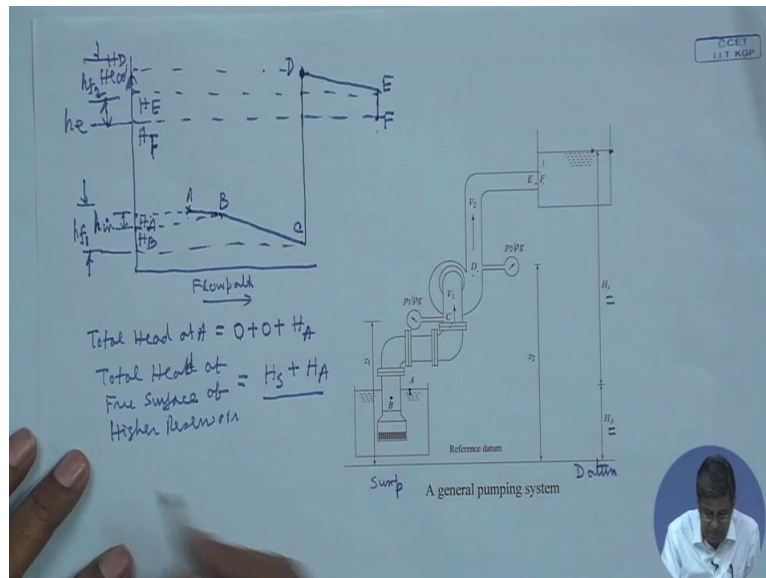 CCET
I.I.T. KGP
HD
Hloo
hf2
HE
he
HF
hf1
hin
HA
HB
A
B
C
D
E
F
Flowpath
Total Head at A = 0+0+HA
Total Head at
Free Surface of = Hs + HA
Higher Reservoir
E
F
V2
D
p2/ρg
p1/ρg
V1
C
Hs
z1
z2
A
B
HA
Reference datum
Sump
Datum
A general pumping system